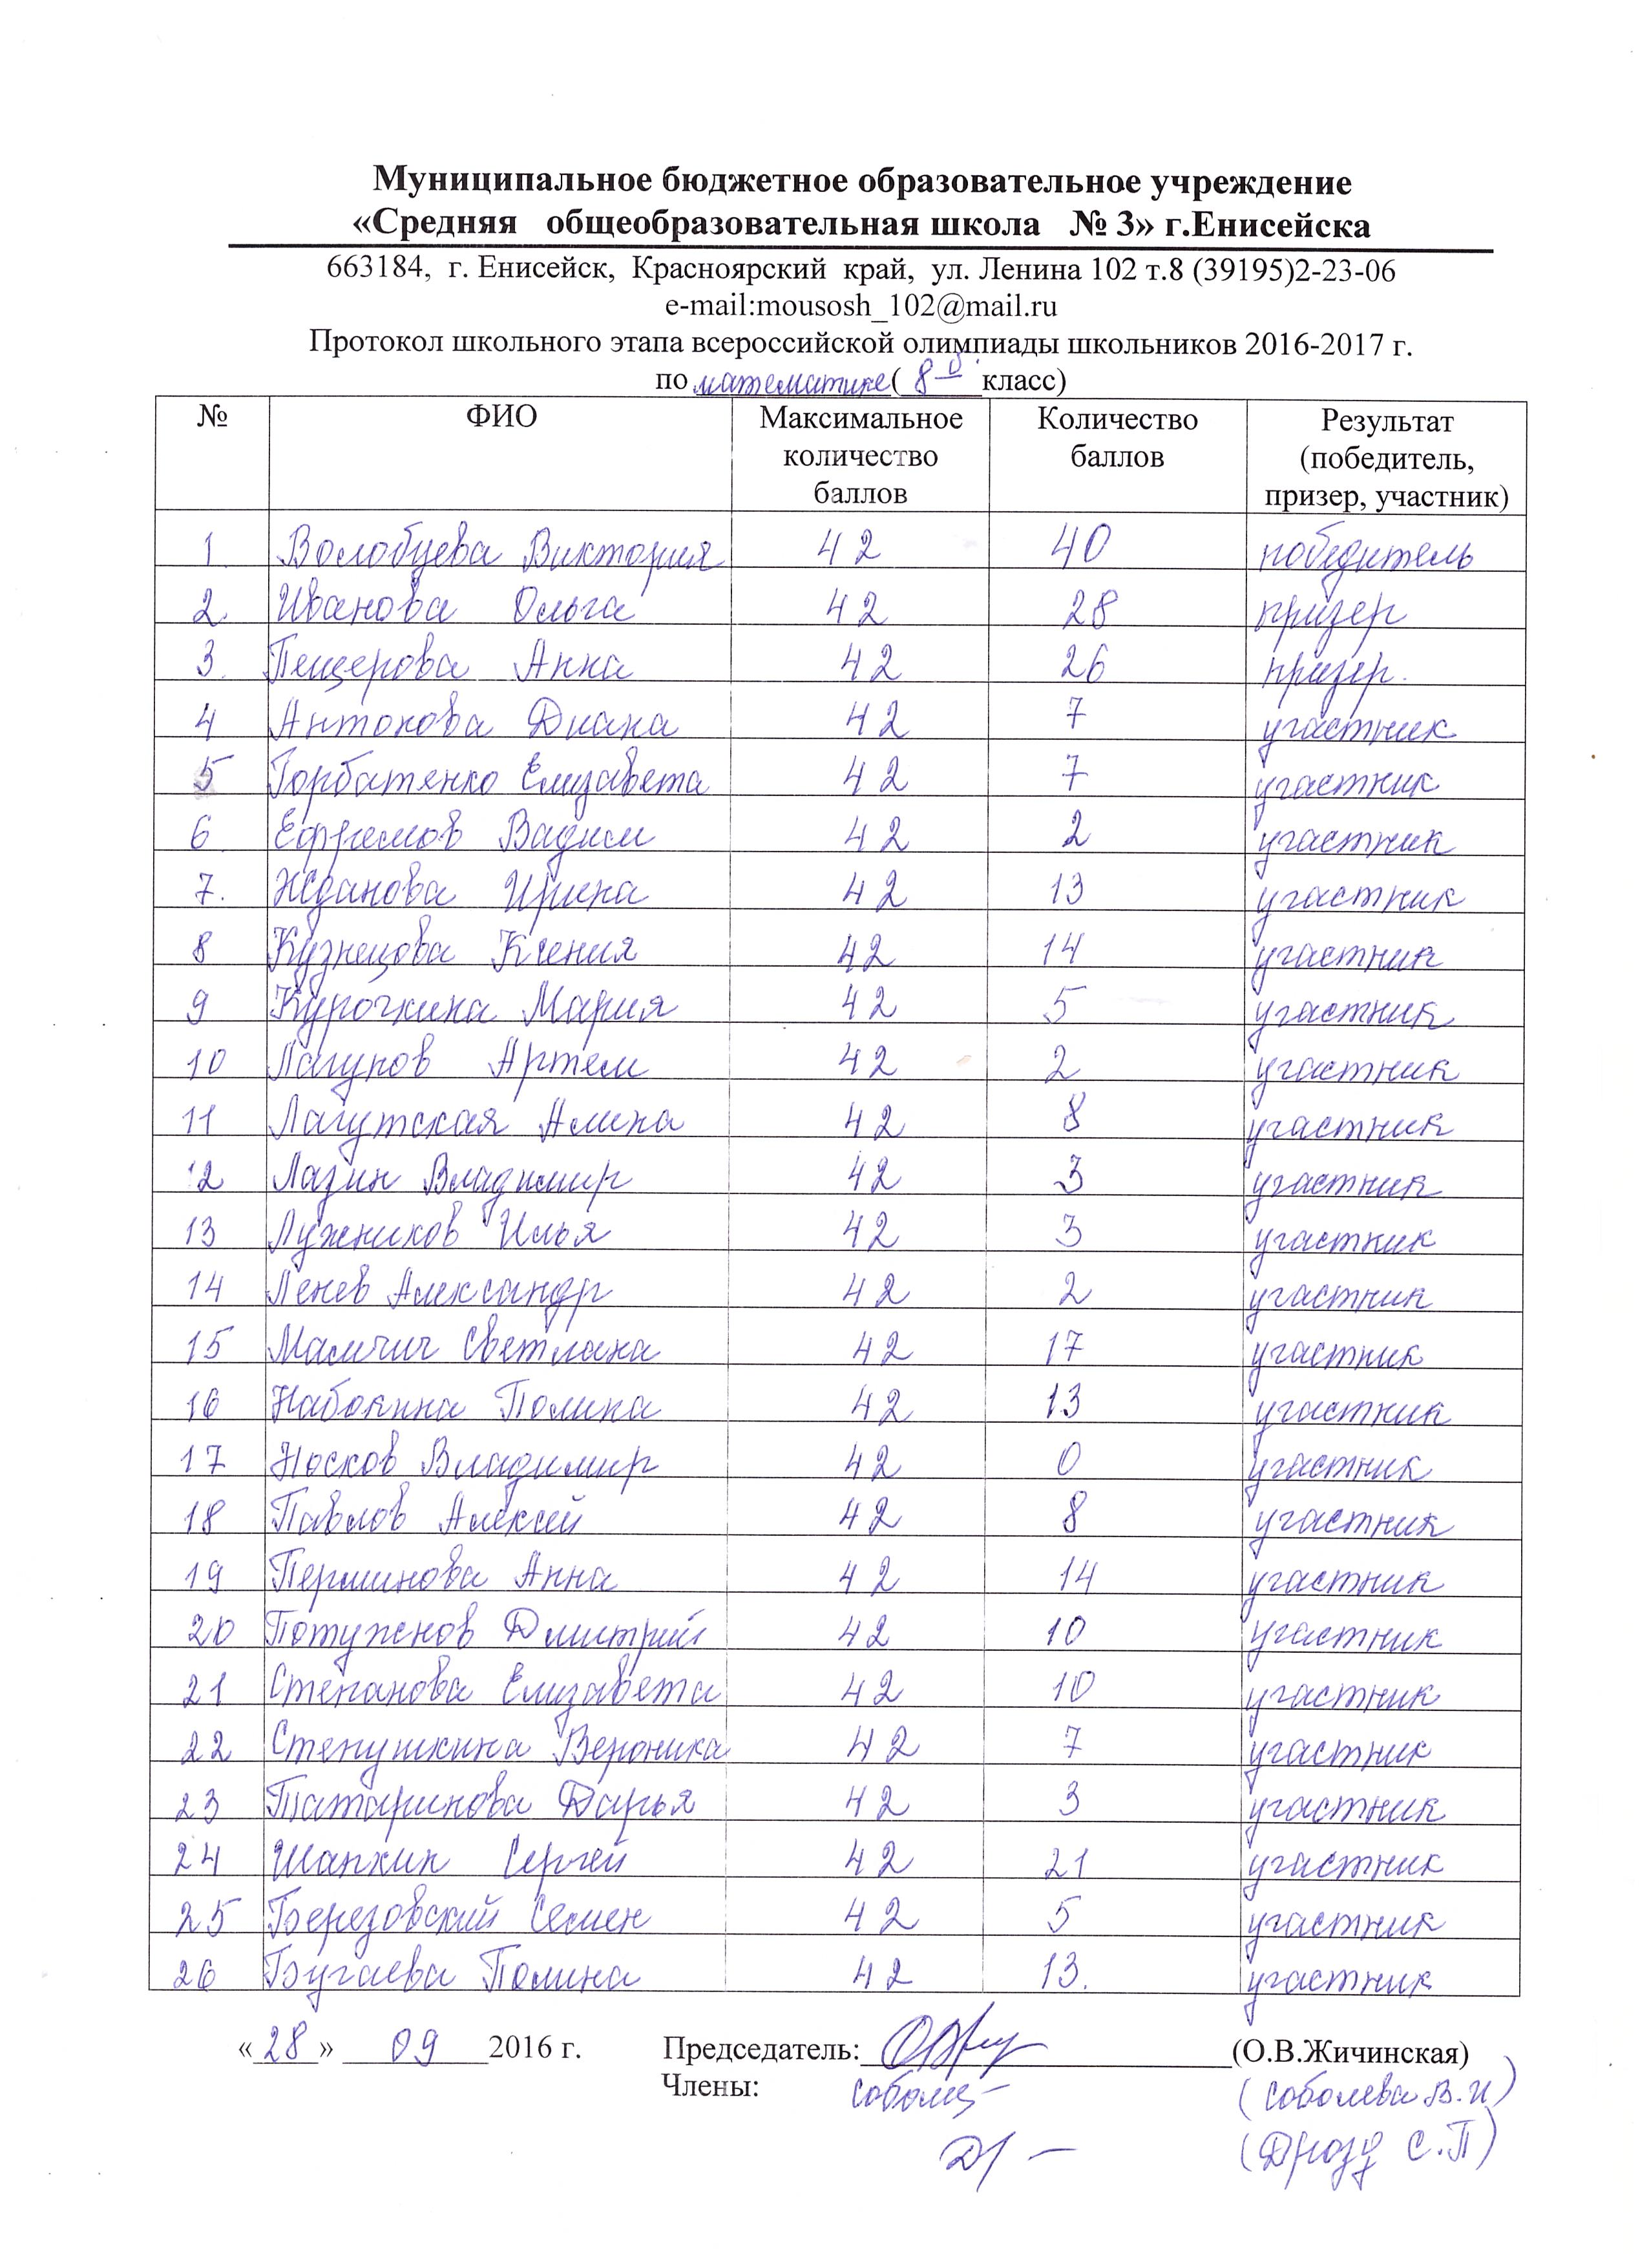 Муниципальное бюджетное образовательное учреждение
«Средняя общеобразовательная школа № 3» г.Енисейска
663184, г. Енисейск, Красноярский край, ул. Ленина 102 т.8 (39195)2-23-06
e-mail:mousosh_102@mail.ru
Протокол школьного этапа всероссийской олимпиады школьников 2016-2017 г.
по математике ( 8 класс)
№ ФИО Максимальное количество баллов Количество баллов Результат (победитель, призер, участник)
1. Волобуева Виктория 42 40 победитель
2. Иванова Ольга 42 28 призер
3. Пещерова Анна 42 26 призер.
4 Антонова Диана 42 7 участник
5 Горбатенко Елизавета 42 7 участник
6 Ефремов Вадим 42 2 участник
7. Жданова Ирина 42 13 участник
8 Кузнецова Ксения 42 14 участник
9 Курочкина Мария 42 5 участник
10 Лагунов Артем 42 2 участник
11 Лагутская Алина 42 8 участник
12 Лазин Владимир 42 3 участник
13 Лужников Илья 42 3 участник
14 Ленев Александр 42 2 участник
15 Мамчич Светлана 42 17 участник
16 Набокина Полина 42 13 участник
17 Носков Владимир 42 0 участник
18 Павлов Алексей 42 8 участник
19 Перминова Анна 42 14 участник
20 Потуженов Дмитрий 42 10 участник
21 Степанова Елизавета 42 10 участник
22 Степушкина Вероника 42 7 участник
23 Татаринова Дарья 42 3 участник
24 Шапхин Сергей 42 21 участник
25 Березовский Семен 42 5 участник
26 Бугаева Полина 42 13. участник
«28» 09 2016 г. Председатель: (О.В.Жичинская)
Члены: (Соболева В.И)
(Дрозд С.П)